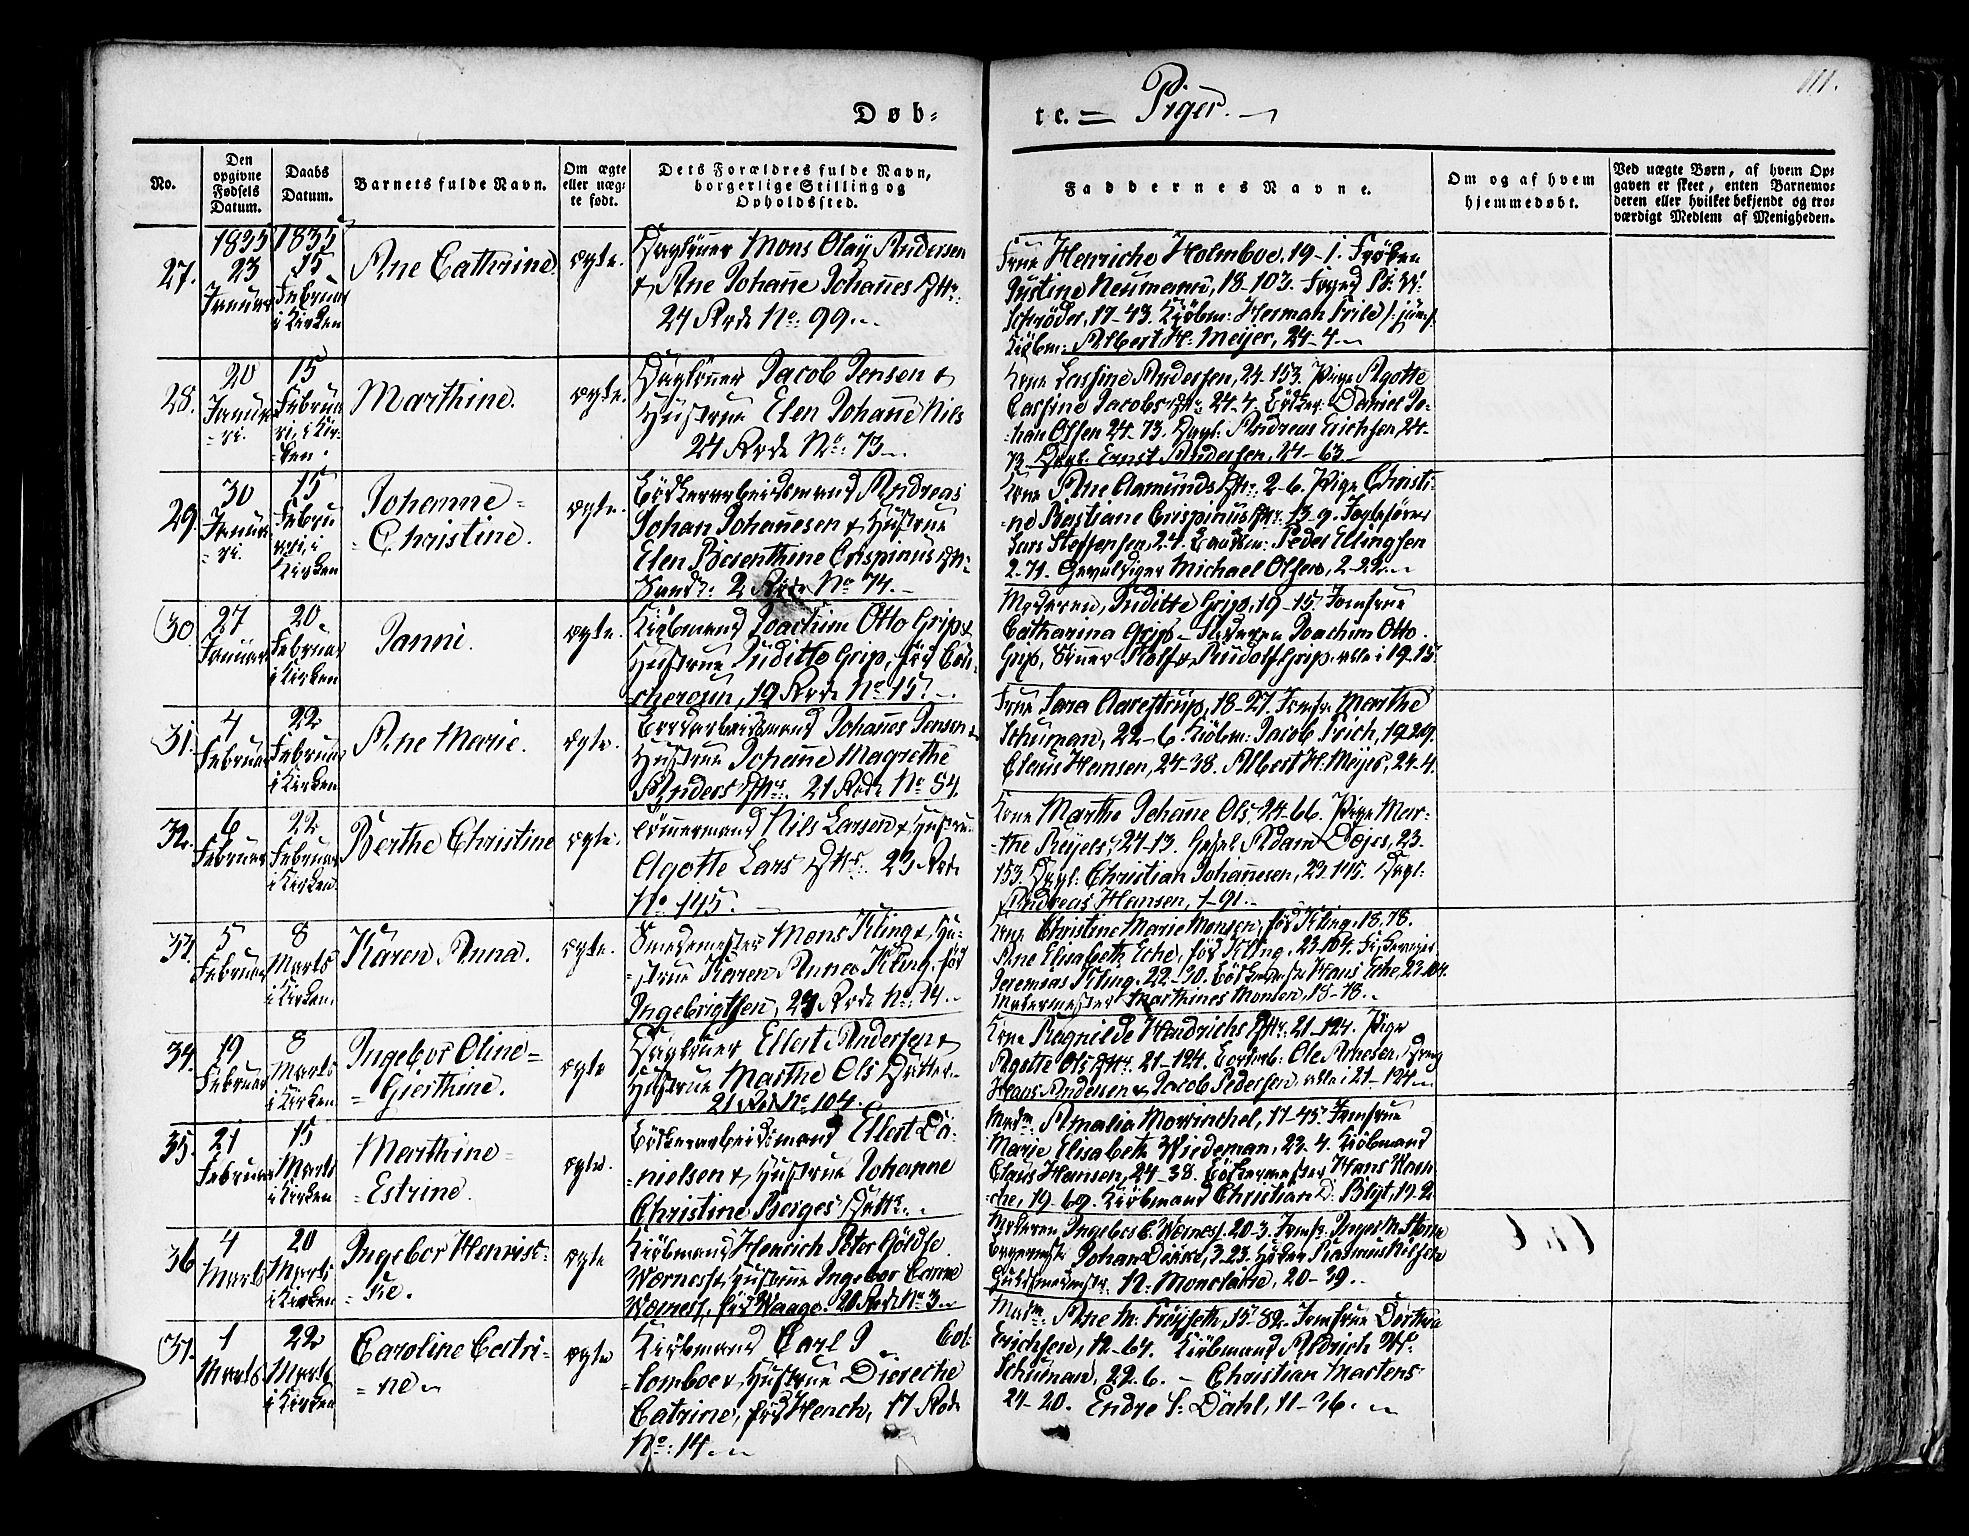 111.
Døb=
te. = Piger.
No.
Den opgivne Fødsels Datum.
Daabs Datum.
Barnets fulde Navn.
Om ægte eller uægte født.
Dets Forældres fulde Navn, borgerlige Stilling og Opholdssted.
Faddernes Navne.
Om og af hvem hjemmedøbt.
Ved uægte Børn, af hvem Opgaven er skeet, enten Barnemoderen eller hvilket bekjendt og troværdigt Medlem af Menigheden.
27.
1835
23
Januar
1835
15
Februar
i Kirken
Ane Cathrine
ægte.
Daglønner Mons Olay Andersen
& Ane Johañe Johañes Dttr:
24 Rode No: 99.
Frue Henriche Holmboe, 19-1. Frøken
Justine Neumann, 18-103. Foged
Schrøder, 17-43. Kjøbm: Herman Friele /: jun:/
Kjøbm: Albert H: Meyer, 24-4.
28.
20
Januari.
15
Februari, i Kirken.
Marthine.
ægte.
Daglønner Jacob Jensen &
Hustrue Elen Johañe Nils
24 Rode No: 73.
Kone Andersen, 24-153. Pige Agotte
Jacobs Dttr. 24-4. Bødker Daniel Jo=
=han Olsen 24-73. Dagl: Andreas Erichsen, 24-
73. Dagl: Ernst Andersen, 24-63.
29.
30
Januari.
15
Februari, i
Kirken
Johanne=
=Christine.
ægte.
Bødkerarbeidsmand Andreas
Johan Johañesen & Hustrue
Elen Berenthine Crispinus Dtt:
2 Rode No 74.
Kone Ane Aamunds Dttr. 2-6. Pige Christi=
=ne Bastiane Crispinus Dttr. 13-9.
Lars Steffensen, 2-4. Peder Ellingsen
2-71. Michael Olsen, 2-22.
30.
27
Januar
20.
Februar
i Kirken
Janni.
ægte.
Kjøbmand Joachim Otto Grip &
Hustrue Juditte Grip, fød
19 Rode No 15.
Moderen, Juditte Grip, 19-15. Jomfrue
Catharina Grip - Faderen Joachim Otto
Grip, Rolf & Rudolf Grip. alle i 19-15.
31.
4
Februar
22
Februar
i Kirken
Ane Marie.
ægte.
Johañes Jensen &
Hustrue Johañe Magrethe
Anders Dttr. 21 Rode No 54.
Frue Sara Aarestrup, 18-27. Jomfr. Marthe
Schuman, 22-6. Kjøbm: Jacob Frich, 19-29.
Claus Hansen, 24-38. Albert H. Meyer, 24-4.
32.
6
Februar
22
Februar
i Kirken.
Berthe Christine
ægte.
Tømmermand Nils Larsen & Hustrue
Agotte Lars Dttr. 23 Rode
No 145.
Kone Marthe Johañe Ols, 24-66. Pige Mar=
=the 24-13. Adam 23-
153. Dagl: Christian Johañesen, 23-145. Dagl:
Andreas Hansen, 1-91.
33.
5
Februar
8
Marts
i Kirken.
Karen Anna.
ægte.
Smedemester Mons Kling & Hu=
=strue Karen Anna Kling, fød
Ingebrigtsen, 24 Rode No. 14.
Kone Christine Marie Monsen, fød Kling. 18-78.
Ane Elisabeth Eche, fød Kling, 23-104.
Jeremias Kling. 22-30. Hans Eche, 23-104.
Marthines Monsen, 18-78.
34.
19
Februar
8
Marts
i Kirken
Ingebor Oline=
=Gjerthine.
ægte
Daglønner Ellert Andersen &
Hustrue Marthe Ols Datter
21 Rode No 104.
Kone Ragnilde Hendrichs Dttr. 21-124. Pige
Agotte Ols Dttr. 21-124. Ole
Hans Andersen & Jacob Pedersen. alle i 21-124.
35.
21
Februar
15
Marts
i Kirken
Marthine=
=Estrine.
ægte.
Bødkerarbeidsmand Ellert Da=
=nielsen & Hustrue Johanne
Christine Børges Datt:
Madm. Amalia Mowinchel, 17-45. Jomfrue
Marie Elisabeth Wiedeman, 22-4. Kjøbmand
Claus Hansen, 24-38. Bødkermester Hans
19-69. Kjøbmand Christian D: Blyt, 19-2
36
4
Marts
20
Marts
i Kirken
Ingebor Henrist=
=ke.
ægte
Kjøbmand Henrich Peter Gøldse
Wernest & Hustrue Ingebor
Wernest, fød Waage. 20 Rode No. 3.
Moderen Ingebor C. Wernest. 20-3. Jomfr: Inger M.
Johan 3-23. Rasmus
N. Monclaire, 20-39.
37.
1
Marts
22
Marts
i Kirken
Caroline Catri=
=ne
ægte
Kjøbmand Carl J
& Hustrue Diereche
Catrine, fød Hench, 17 Rode
No: 14.
Madm. Ane M. Frøyseth, 15-82. Jomfrue Dorthea
Erichsen, 12-64. Kjøbmand Aldrich
Schuman, 22-6. - Christian Martens
24-20. Endre S: Dahl, 11-36.